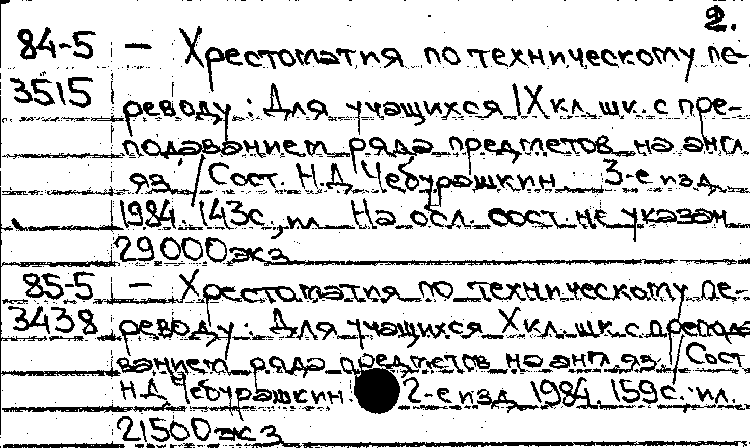 2.
84-5 — Хрестоматия по техническому пе-
3515 реводу: Для учащихся IX кл. шк. с пре-
подаванием ряда предметов на англ
яз. / Сост. Н.Д Чебурашкин 3-е изд
1984. 143с., ил На обл. сост. не указан
29000 экз
85-5 — Хрестоматия по техническому пе-
3438 реводу: Для учащихся X кл. шк. с препода
ванием ряда предметов на англ. яз. / Сост
Н.Д. Чебурашкин 2-е изд 1984. 159с.: ил.
21500 экз